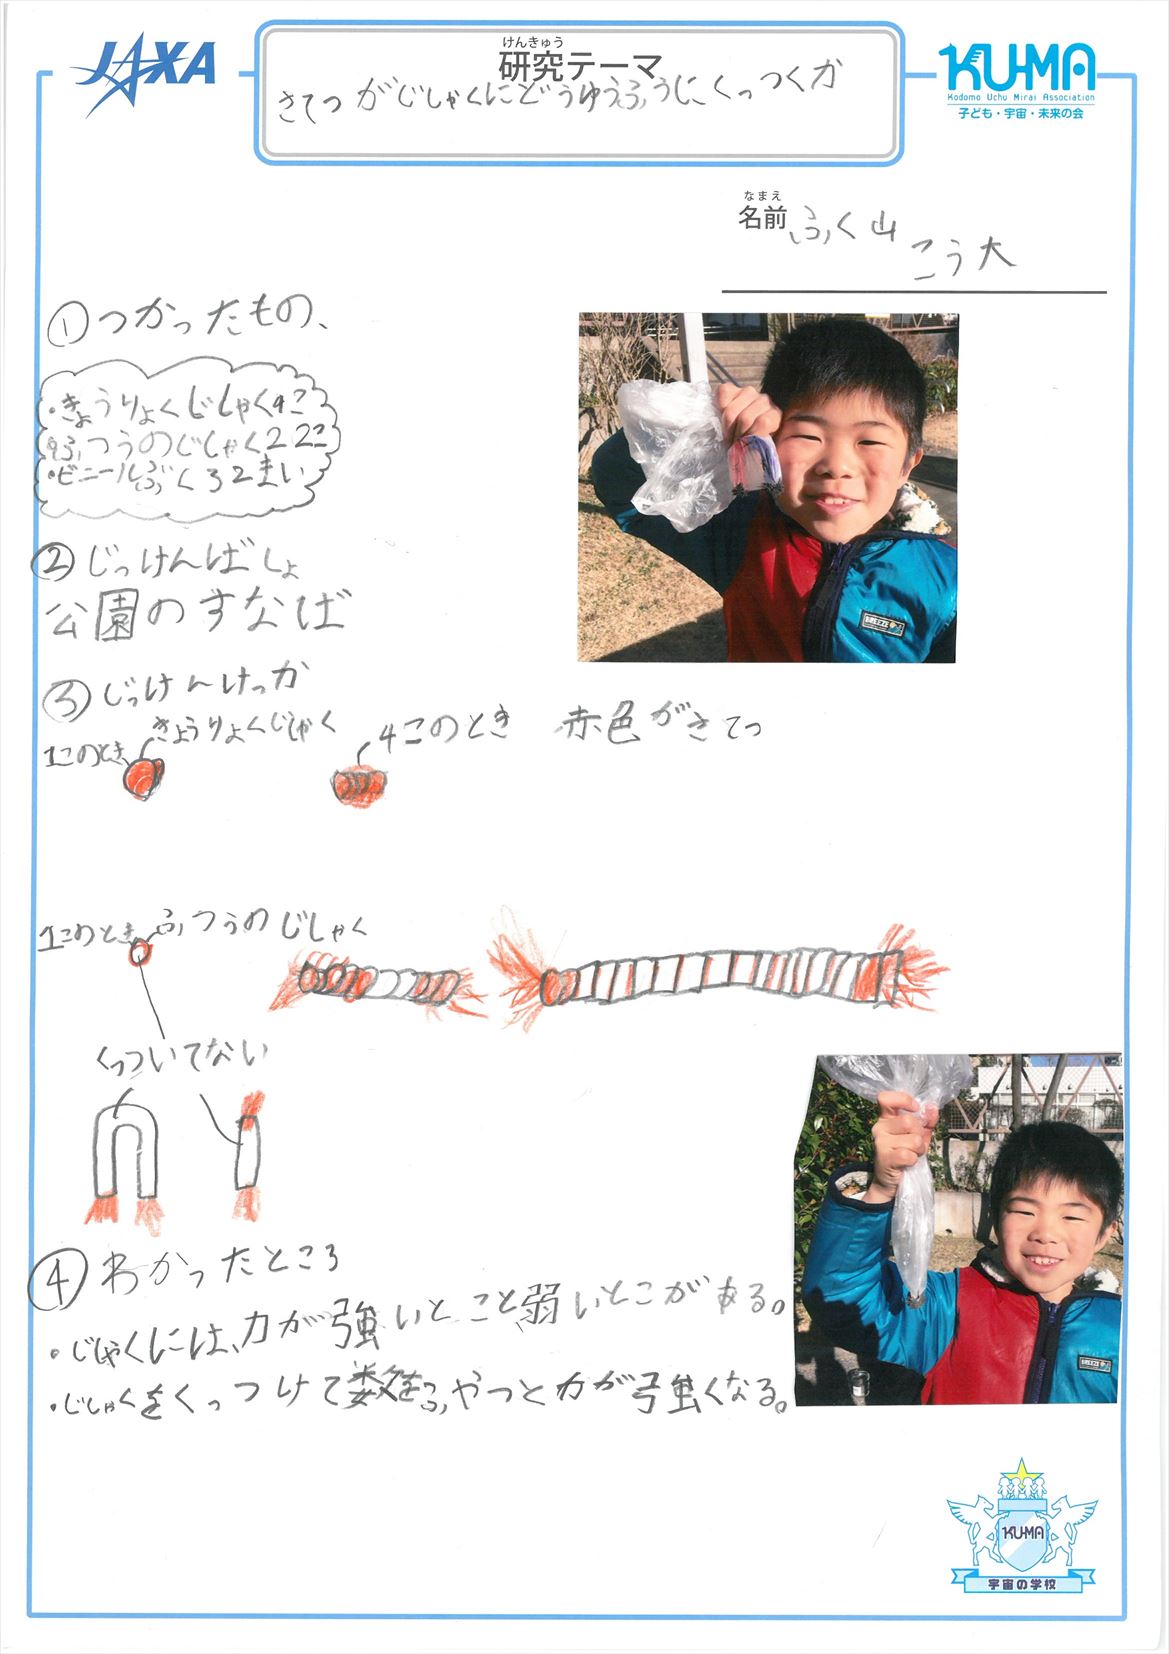 JAXA
けんきゅう
研究テーマ
さてつがじしゃくにどうゆうふうにくっつくか
KU-MA
Kodomo Uchu Mirai Association
子ども・宇宙・未来の会
なまえ
名前 ふく山 こう大
①つかったもの、
・きょうりょくじしゃく4こ
・ふつうのじしゃく22こ
・ビニールぶくろ2まい
②じっけんばしょ
公園のすなば
③じっけんけっか
1このとき きょうりょくじしゃく 4このとき 赤色がさてつ
1このとき ふつうのじしゃく
くっついてない
④わかったところ
・じしゃくには、力が強いとことこ弱いとこがある。
・じしゃくをくっつけて数をふやすと力が強くなる。
BREEZE
BREEZE
KU-MA
宇宙の学校